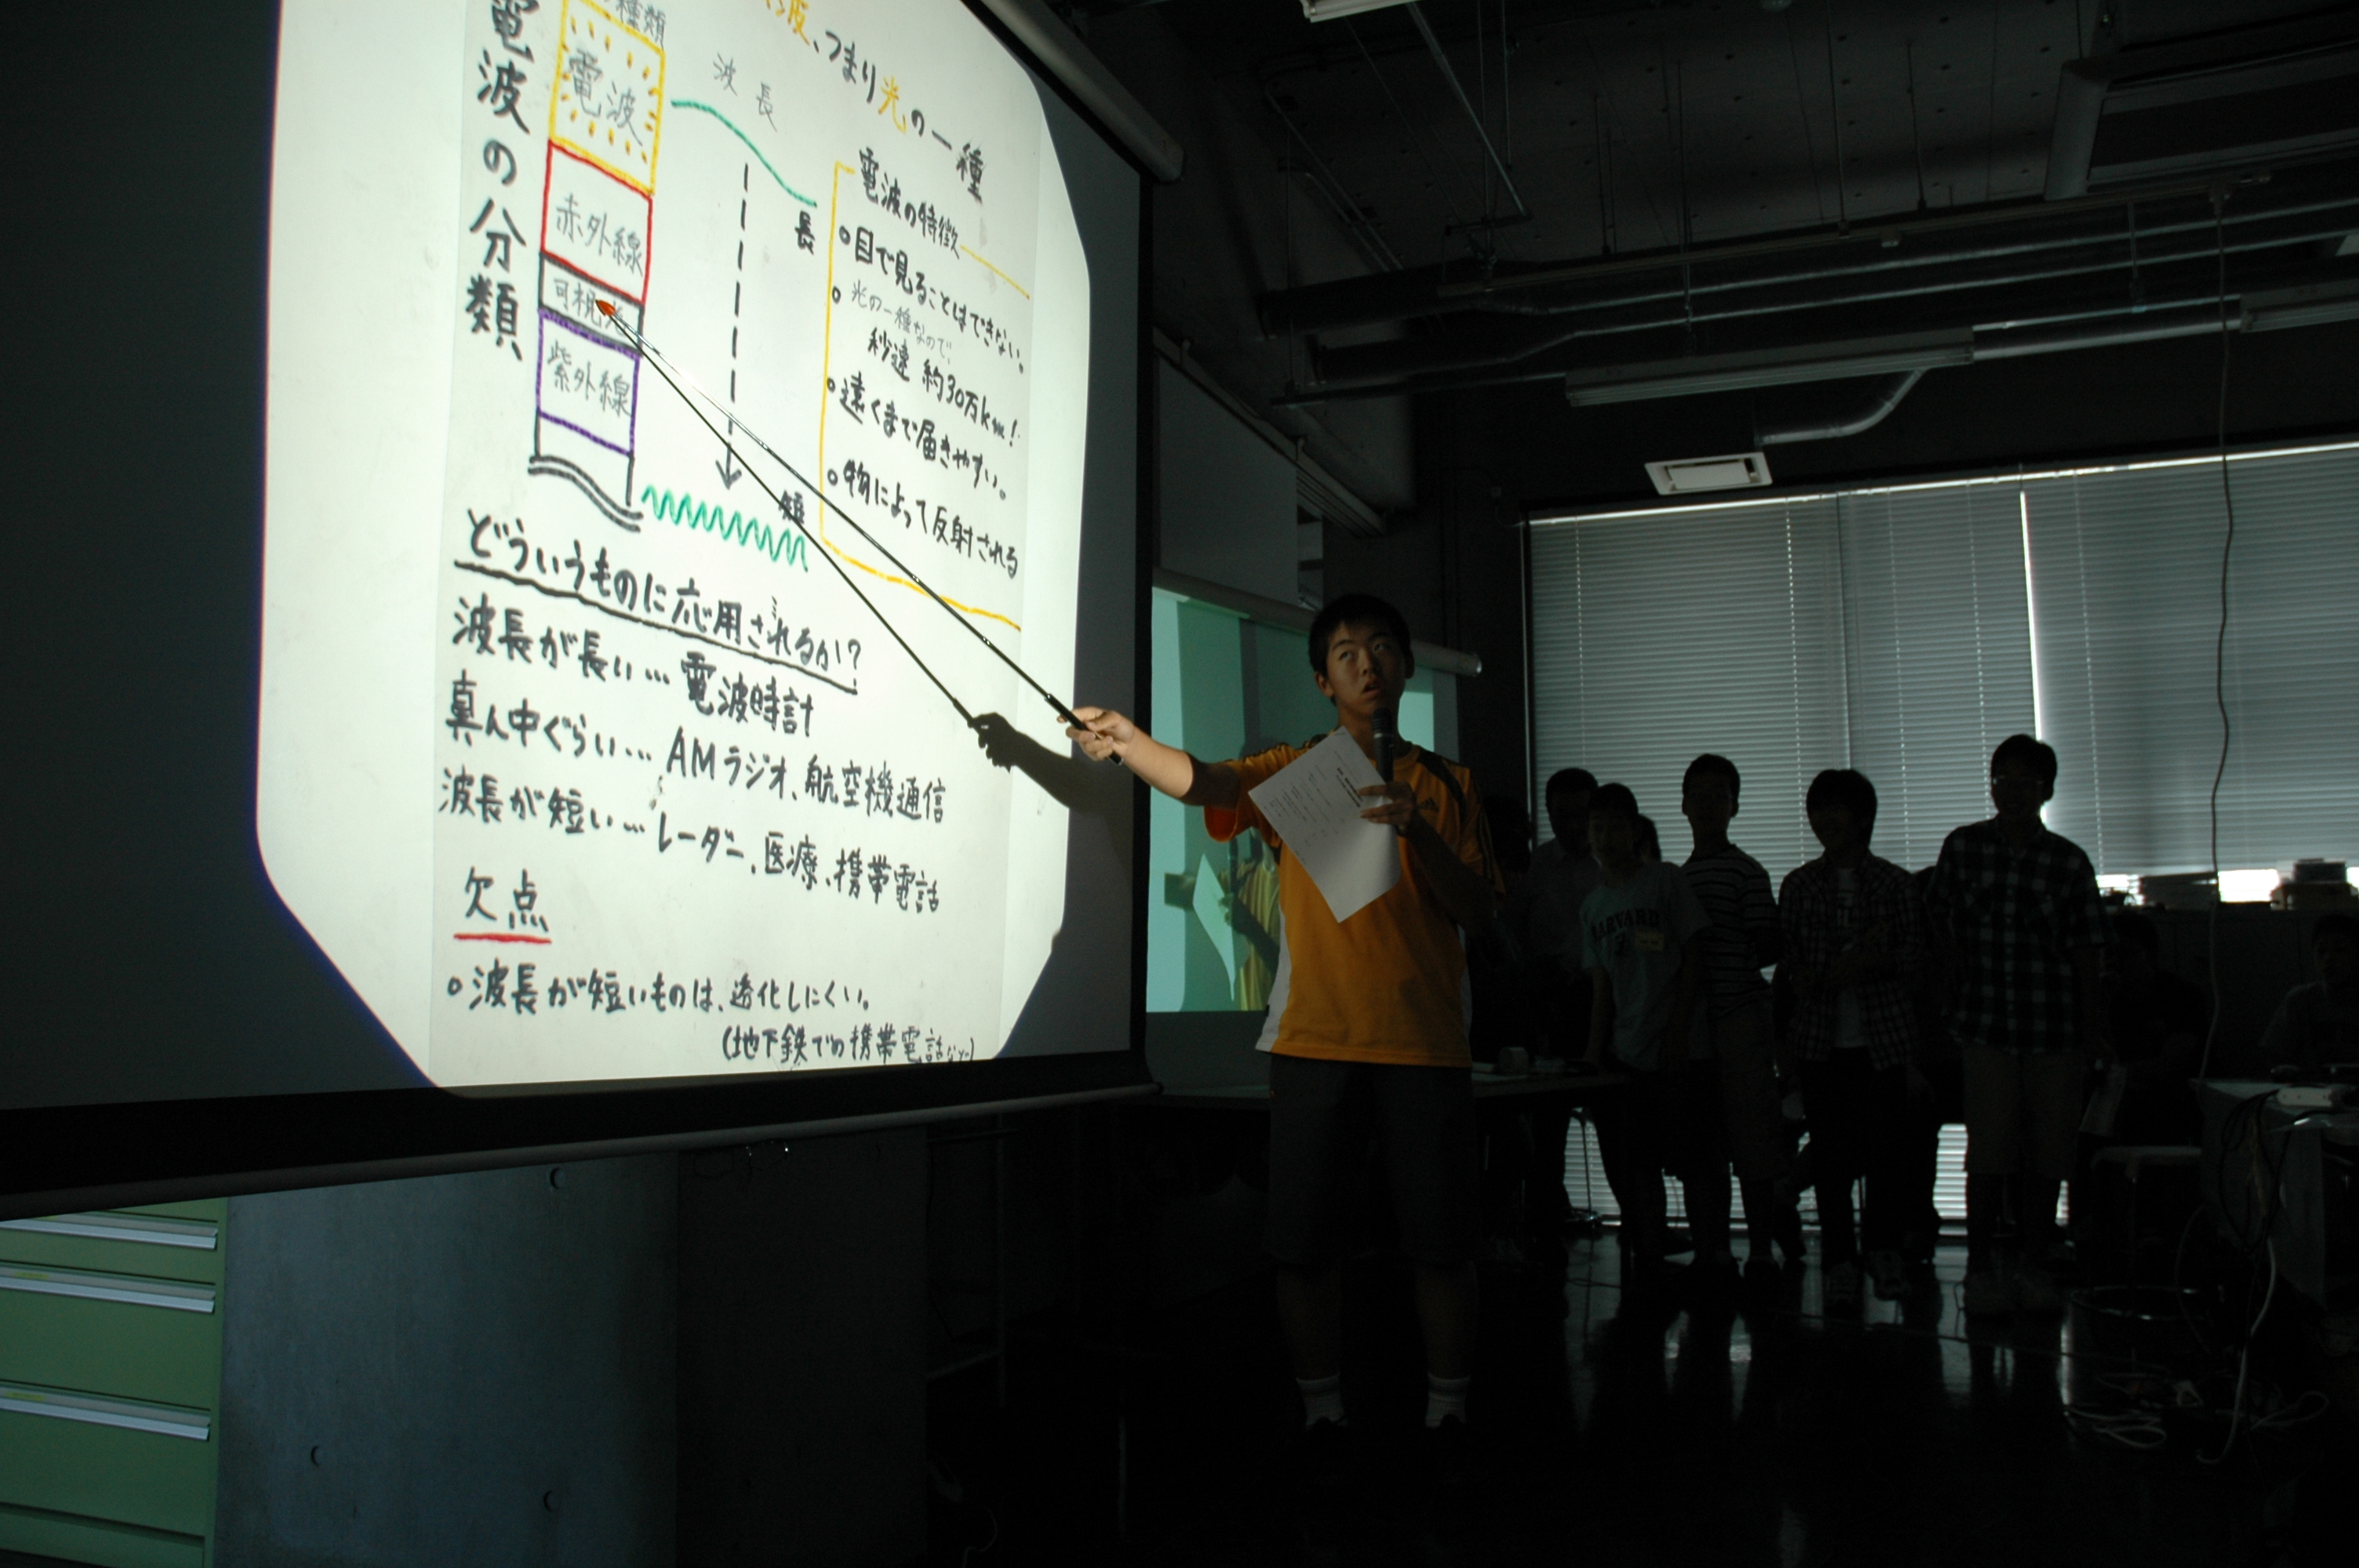 電波の分類
種類
電波
赤外線
可視光
紫外線
波長
長
短
波、つまり光の一種
電波の特徴
目で見ることはできない。
光の一種なので、
秒速 約30万km!
遠くまで届きやすい。
物によって反射される
どういうものに応用されるか?
波長が長い…電波時計
真ん中ぐらい…AMラジオ、航空機通信
波長が短い…レーダー、医療、携帯電話
欠点
波長が短いものは、透化しにくい。
(地下鉄での携帯電話など)
HARVARD